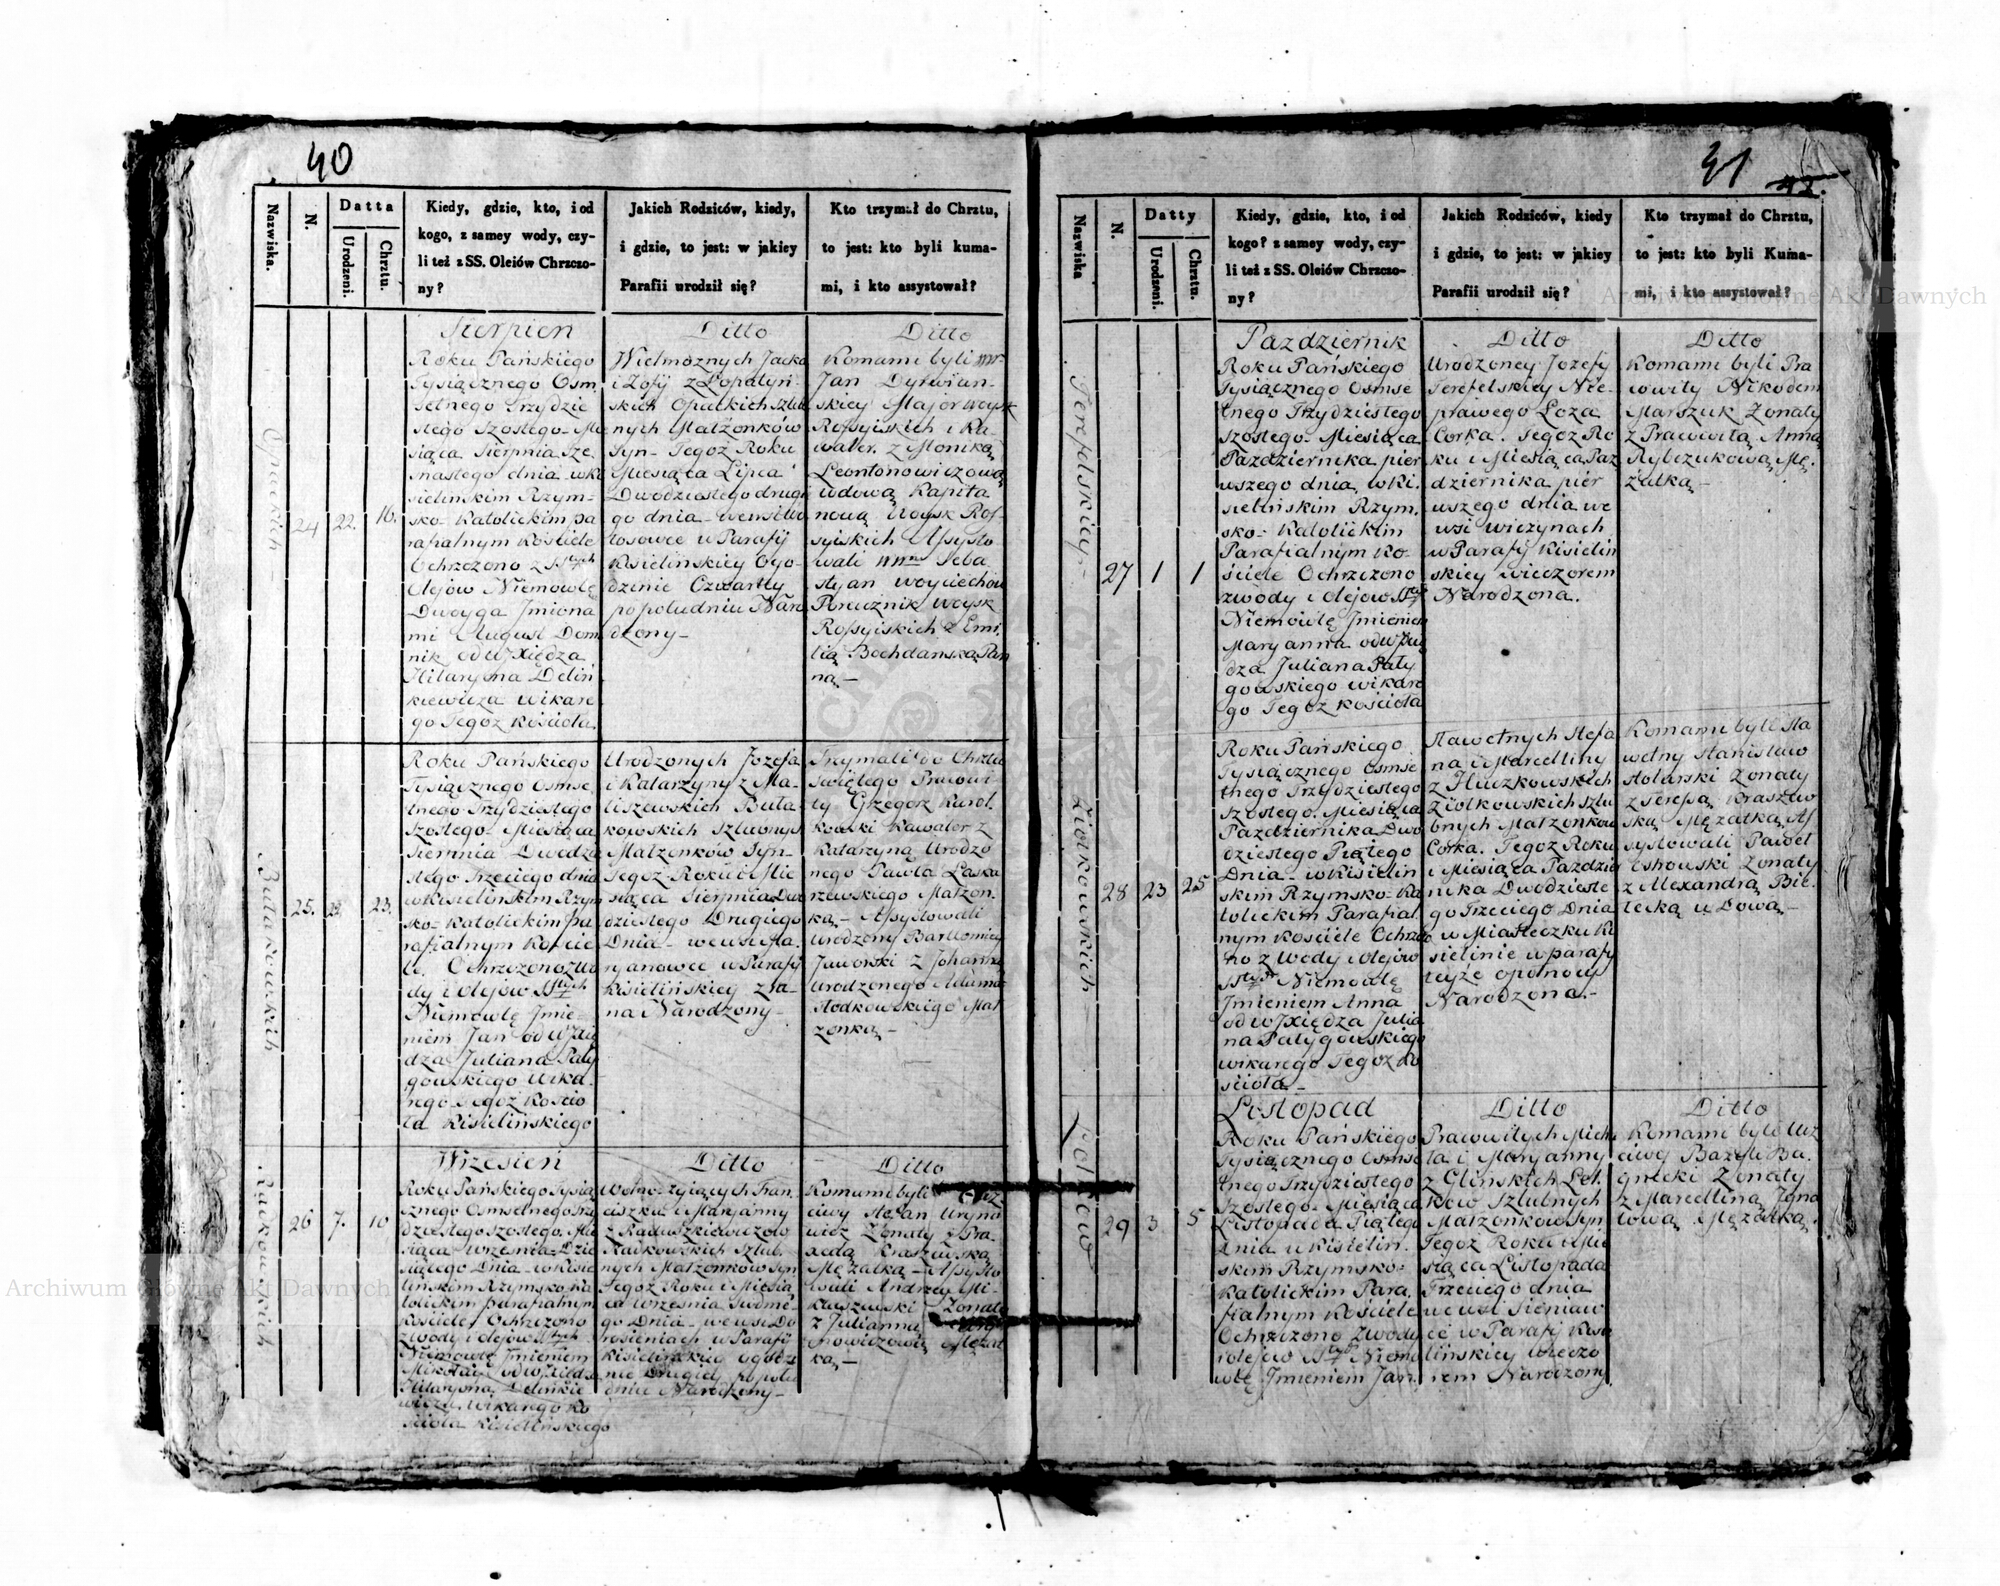 40
Nazwiska.
N.
Datta
Urodzeni.
Chrztu.
Kiedy, gdzie, kto, i od
kogo, z samey wody, czy-
li też z SS. Oleiów Chrzczo-
ny?
Jakich Rodziców, kiedy,
i gdzie, to jest: w jakiey
Parafii urodził się?
Kto trzymał do Chrztu,
to jest: kto byli kuma-
mi, i kto assystował?
24
22.
16.
Sierpień
Roku Pańskiego
Tysiącznego Osm
Setnego Trzydzie
stego Szostego - Mie
siąca Sierpnia Sze
snastego dnia w Ki
sielinskim Rzym=
sko= Katolickim pa
rafialnym Kościele
Ochrzczono z SStych
Olejow Niemowlę
Dwoyga Jmiona
mi August Domi
nik od WJXiędza
Hilaryona Deliń
kiewicza Wikare
go Tegoż Kościoła.
Ditto
Wielmożnych Jacka
i Zofij z Łopatyń-
skich Opackich Szlub
nych Małżonków
Syn - Tegoż Roku
Miesiąca Lipca
Dwodziestego drugie
go dnia - we wsi Wo
łosowce w Parafij
Kisielińskiey o go-
dzinie Czwartey
po południu Naro
dzony -
Ditto
Komami byli WWni
Jan
skiey Major Woysk
Rossyiskich i Ka-
waler. z Moniką
Leontonowiczową
wdową Kapita
nową Woysk Ros-
syiskich Assysto
wali WWni Seba
styan Woyciechow
Porucznik Woysk
Rossyiskich z Emi
lią Bochdanską Pan
ną -
Butakowskich
25.
22.
23.
Roku Pańskiego
Tysiącznego Osmse
tnego Trzydziestego
Szostego - Miesiąca
Sierpnia Dwodzie
stego Trzeciego dnia
w Kisielinskim Rzym
sko= Katolickim pa
rafialnym Koście
le. Ochrzczono z Wo
dy i Olejow SStych
Niemowlę Jmie-
niem Jan od WJXię
dza Juliana Paty
gowskiego Wika-
rego Tegoż Koscio
ła Kisielińskiego
Urodzonych Jozefa
i Katarzyny z Ma-
liszewskich Buta
kowskich Szlubnych
Małżonków Syn-
Tegoż Roku i Mie
siąca Sierpnia Dwo
dziestego Drugiego
Dnia - we wsi Ma.
ryanowce w Parafij
Kisielińskiey z Ra-
na Narodzony-
Trzymali do Chrztu
Swiętego Pracowi-
ty Grzegorz Karol.
kowski Kawaler z
Katarzyną Urodzo
nego Pawła Laska
rzewskiego Małżon.
ką - Assystowali
Urodzony Bartłomiey
Jaworski z Johanną
Urodzonego Adama
Słodkowskiego Mał
żonką -
Raikowskich
26
7.
10
Wrzesień
Roku Pańskiego Tysią
cznego Osmsetnego Trzy
dziestego Szostego. Mie
siąca Września Dzie
siątego Dnia - w Kisie
lińskim Rzymsko Ka
tolickim parafialnym
Kościele Ochrzczono
z wody i olejow SStych
Niemowlę Jmieniem
Mikołay od WJXiędza
Hilaryona Delinkie
wicza. Wikarego Ko
ścioła Kisielińskiego
Ditto
Wolno-żyiących Fran.
ciszka i Maryanny
z Raduszkiewiczow
Raikowskich Szlub.
nych Małżonkow Syn
Tegoż Roku i Miesią
ca Września Siodme-
go Dnia - we wsi Do
rosieniach w Parafij
Kisielińskiey o godzi
nie Drugiey po połu
dniu Narodzony -
Ditto
Komami byli Ucz
ciwy Stefan Uryno
wicz Żonaty z Pra-
xedą Kraszewską
Mężatką - Assysto
wali Andrzey Mi-
kuszewski Żonaty
z Julianną
nowiczową Mężat
ką -
41
Nazwiska
N.
Datty
Urodzeni.
Chrztu.
Kiedy, gdzie, kto, i od
kogo? z samey wody, czy-
li też z SS. Oleiów Chrzczo-
ny?
Jakich Rodziców, kiedy
i gdzie, to jest: w jakiey
Parafii urodził się?
Kto trzymał do Chrztu,
to jest: kto byli Kuma-
mi, i kto assystował?
Terefelskiey -
27
1
1
Pazdziernik
Roku Pańskiego
Tysiącznego Osmse
tnego Trzydziestego
Szostego - Miesiąca
Pazdziernika pier
wszego dnia, w Ki.
sielińskim Rzym.
sko= Katolickim
Parafialnym Ko-
ściele Ochrzczono
z wody i Olejow SStych
Niemowlę Jmieniem
Maryanna od WJXię
dza Juliana Paty
gowskiego Wikare
go Tegoż Kościoła
Ditto
Urodzoney Jozefy
Terefelskiey Nie-
prawego Łoza
Corka. Tegoż Ro
ku i Miesiąca Paz
dziernika pier
wszego dnia we
wsi Wiczynach
w Parafij Kisielin
skiey wieczorem
Narodzona.
Ditto
Komami byli Pra
cowity Nikodem
Marszuk Żonaty
z Pracowitą Anną
Rybczukową Mę.
żatką -
Ziołkowskich
28
23
25
Roku Pańskiego
Tysiącznego Osmse
tnego Trzydziestego
Szostego. Miesiąca
Pazdziernika Dwo
dziestego Piątego
Dnia - w Kisielin
skim Rzymsko= Ka
tolickim Parafial.
nym Kościele Ochrzczo
no z Wody i Olejow
SStych Niemowlę
Jmieniem Anna
od WJXiędza Julia
na Patygowskiego
Wikarego Tegoż Ko
ścioła -
Sławetnych Stefa
na i Marcelliny
z Hluczkowskich
Ziołkowskich Szlu
bnych Małżonkow
Corka. Tegoż Roku
i Miesiąca Pazdzier
nika Dwodzieste
go Trzeciego Dnia
w Miasteczku Ki
sielinie w parafij
teyże o połnocy
Narodzona. -
Komami byli Sła
wetny Stanisław
Stolarski Żonaty
z Teressą Kraszew
ską Mężatką, As
systowali Paweł
Żonaty
z Alexandrą Bie-
lecką wdową. -
29
3
5
Listopad
Roku Pańskiego
Tysiącznego Osmse
tnego Trzydziestego
Szostego - Miesiąca
Listopada Piątego
Dnia w Kisielin.
skim Rzymsko=
Katolickim Para.
fialnym Kościele
Ochrzczono z wody
i olejow SStych Niemo
wlę Jmieniem Jan.
Ditto
Pracowitych Micha
ła i Maryanny
z Glińskich Pol.
kow Szlubnych
Małżonkow Syn
Tegoż Roku i Mie
siąca Listopada
Trzeciego dnia
we wsi Sieniaw
ce w Parafij Kisie
lińskiey wieczo
rem Narodzony.
Ditto
Komami byli Ucz
ciwy Bazyli Ba.
gnicki Żonaty
z Marcelliną Igna
Mężatką.
Archiwum Główne Akt Dawnych
Archiwum Główne Akt Dawnych